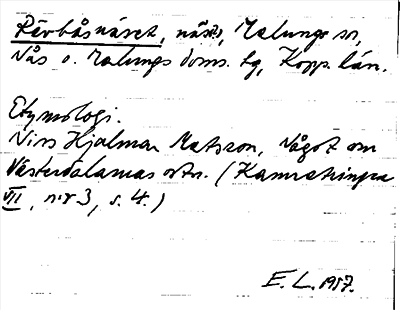 Rävbåsnäset, näs, Malungs sn,
Nås o. Malungs doms. tg, Kopp. län.
Etymologi.
Nils Hjalmar Matsson, Något om
Västerdalarnas ortn. (Kamratringen
VII, nr 3, s. 4.)
E. L. 1957.